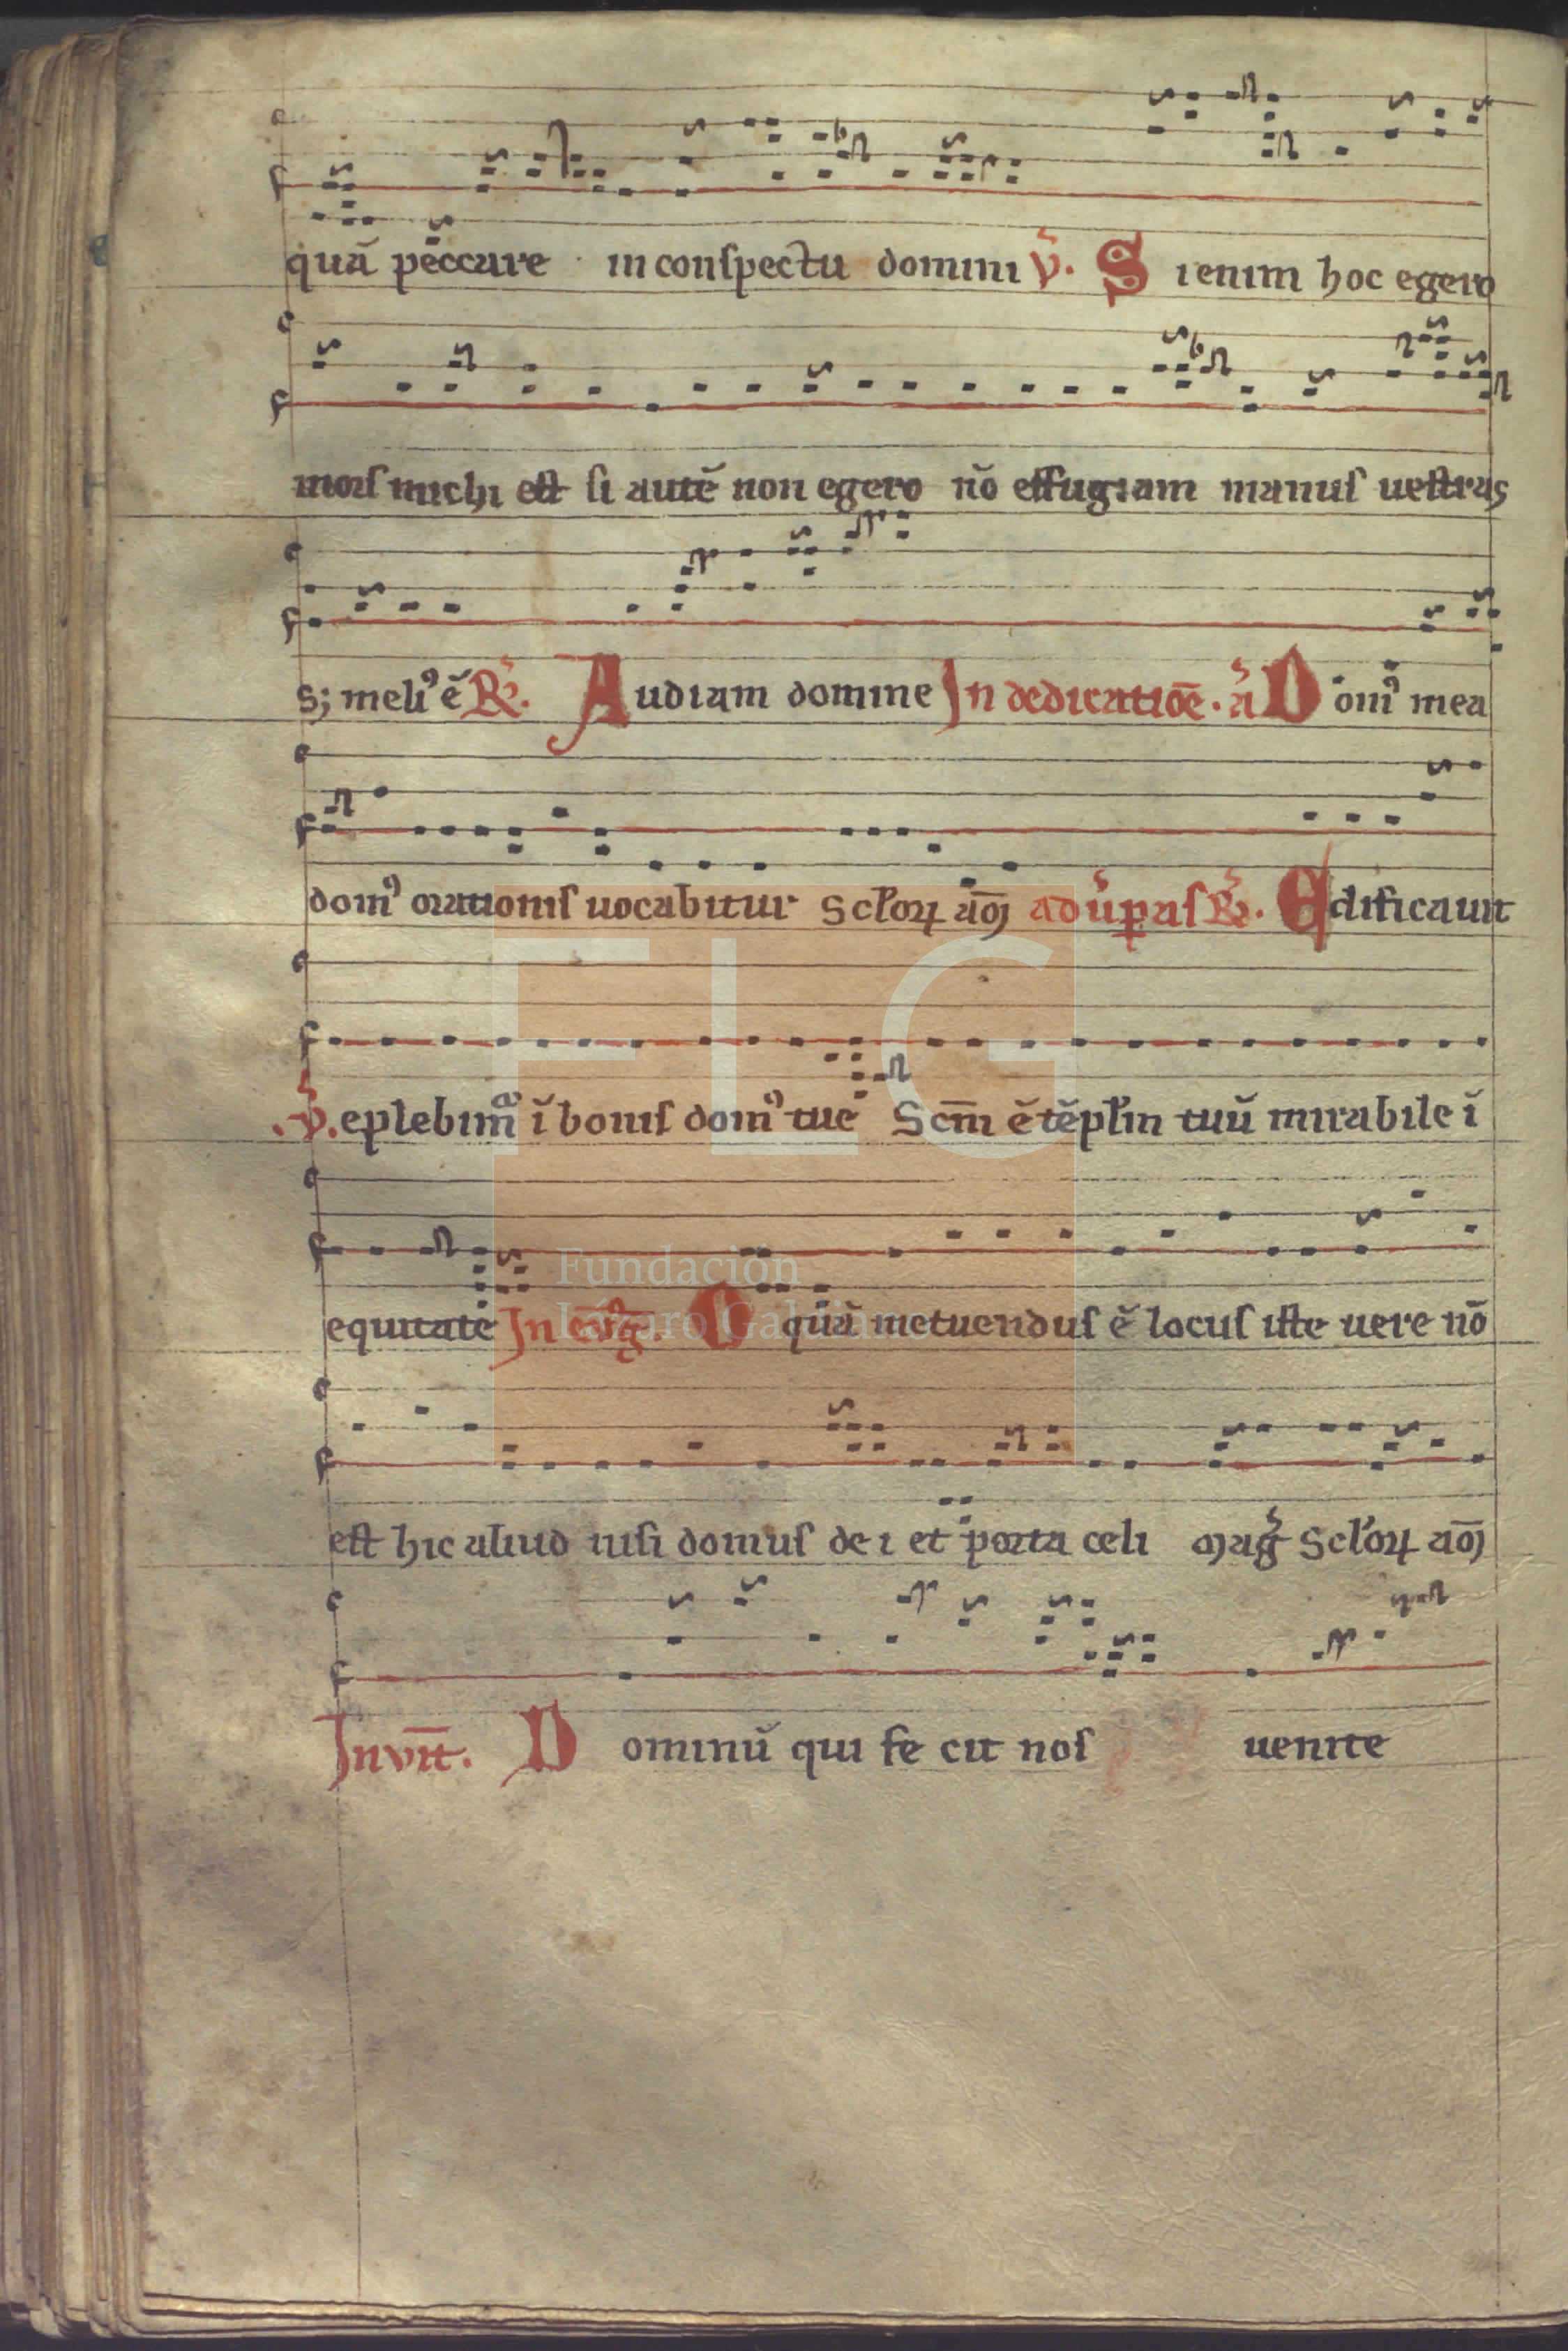 quā peccare in conſpectu domini ṽ. S i enim hoc egero
morſ michi eſt ſi autē non egero nō effugiam manuſ ueſtras
s; meli⁹ ē R̃. Audiam domine In dedicatiōe. ã Dom⁹ mea
dom⁹ orationiſ uocabitur Scl'oꝝ aō) ad ũꝑaſ R̃. Edificauit
ṽ. eplebimᷓ ī boniſ dom⁹ tue Scm̄ ē tēpl'm tuū mirabile ī
equitate In eūg̃. O quā metuenduſ ē locuſ iſte uere nō
eſt hic aliud niſi domuſ dei et porta celi mag̃ Scl'oꝝ aō)
Invit̄. D ominū qui fe cit noſ uenite
FLG
Fundación
Lázaro Galdiano